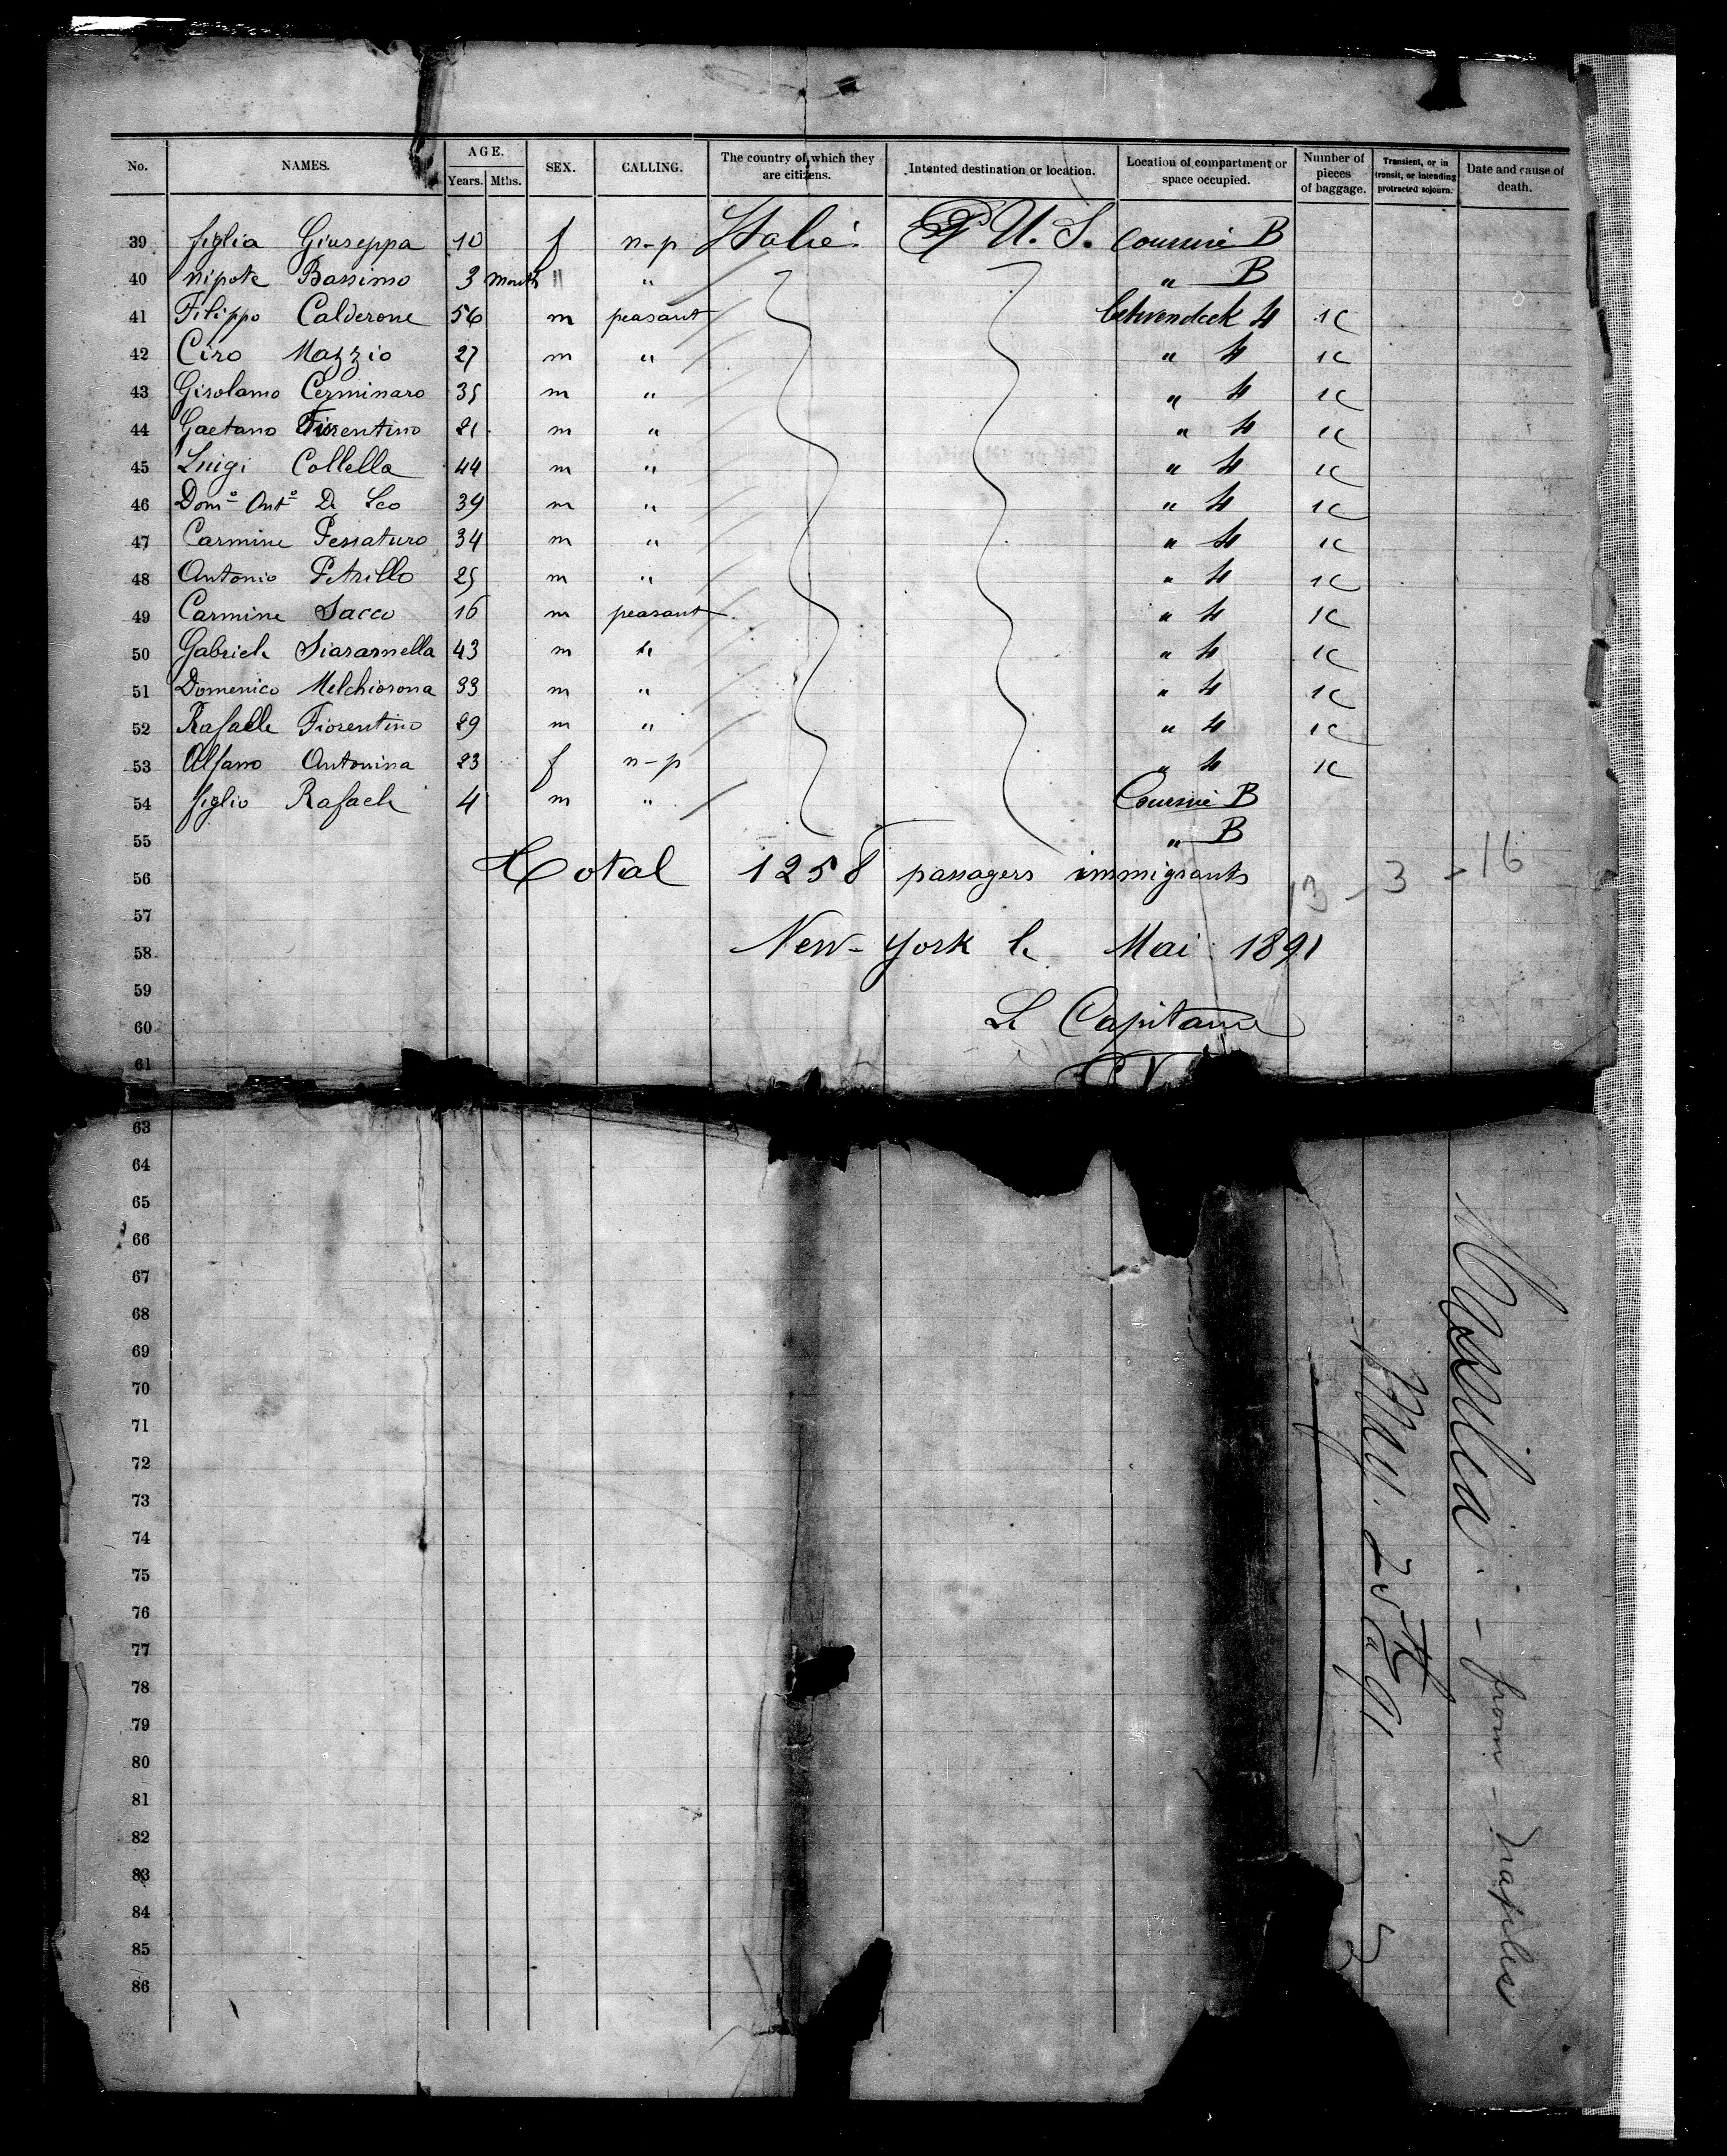 No. NAMES. AGE. Years. Mths. SEX. CALLING. The country of which they are citizens. Intented destination or location. Location of compartment or space occupied. Number of pieces of baggage. Transient, or in transit, or intending protracted sojourn. Date and cause of death.
39 figlia Giuseppa 10 f n-p Italie U. S. B
40 nipote Bassimo 3 month " " " B
41 Filippo Calderone 56 m peasant betwendeck 4 1C
42 Ciro Mazzio 27 m " " 4 1C
43 Girolamo Cerminaro 35 m " " 4 1C
44 Gaetano Fiorentino 21 m " " 4 1C
45 Luigi Collella 44 m " " 4 1C
46 Domo Anto De Leo 39 m " " 4 1C
47 Carmine Pessaturo 34 m " " 4 1C
48 Antonio Petrillo 25 m " " 4 1C
49 Carmine Sacco 16 m peasant " 4 1C
50 Gabriele Siaramella 43 m " " 4 1C
51 Domenico Melchiorona 33 m " " 4 1C
52 Rafaele Fiorentino 29 m " " 4 1C
53 Alfano Antonina 23 f n-p " 4 1C
54 figlio Rafaele 4 m " B
55 " B
56 Total 1258 passagers immigrants 13 - 3 - 16
57
58 New-York le Mai 1891
59
60 Le Capitaine
61
63
64
65
66
67
68
69
70
71
72
73
74
75
76
77
78
79
80
81
82
83
84
85
86
Massilia - from - Naples
May. 25th 91